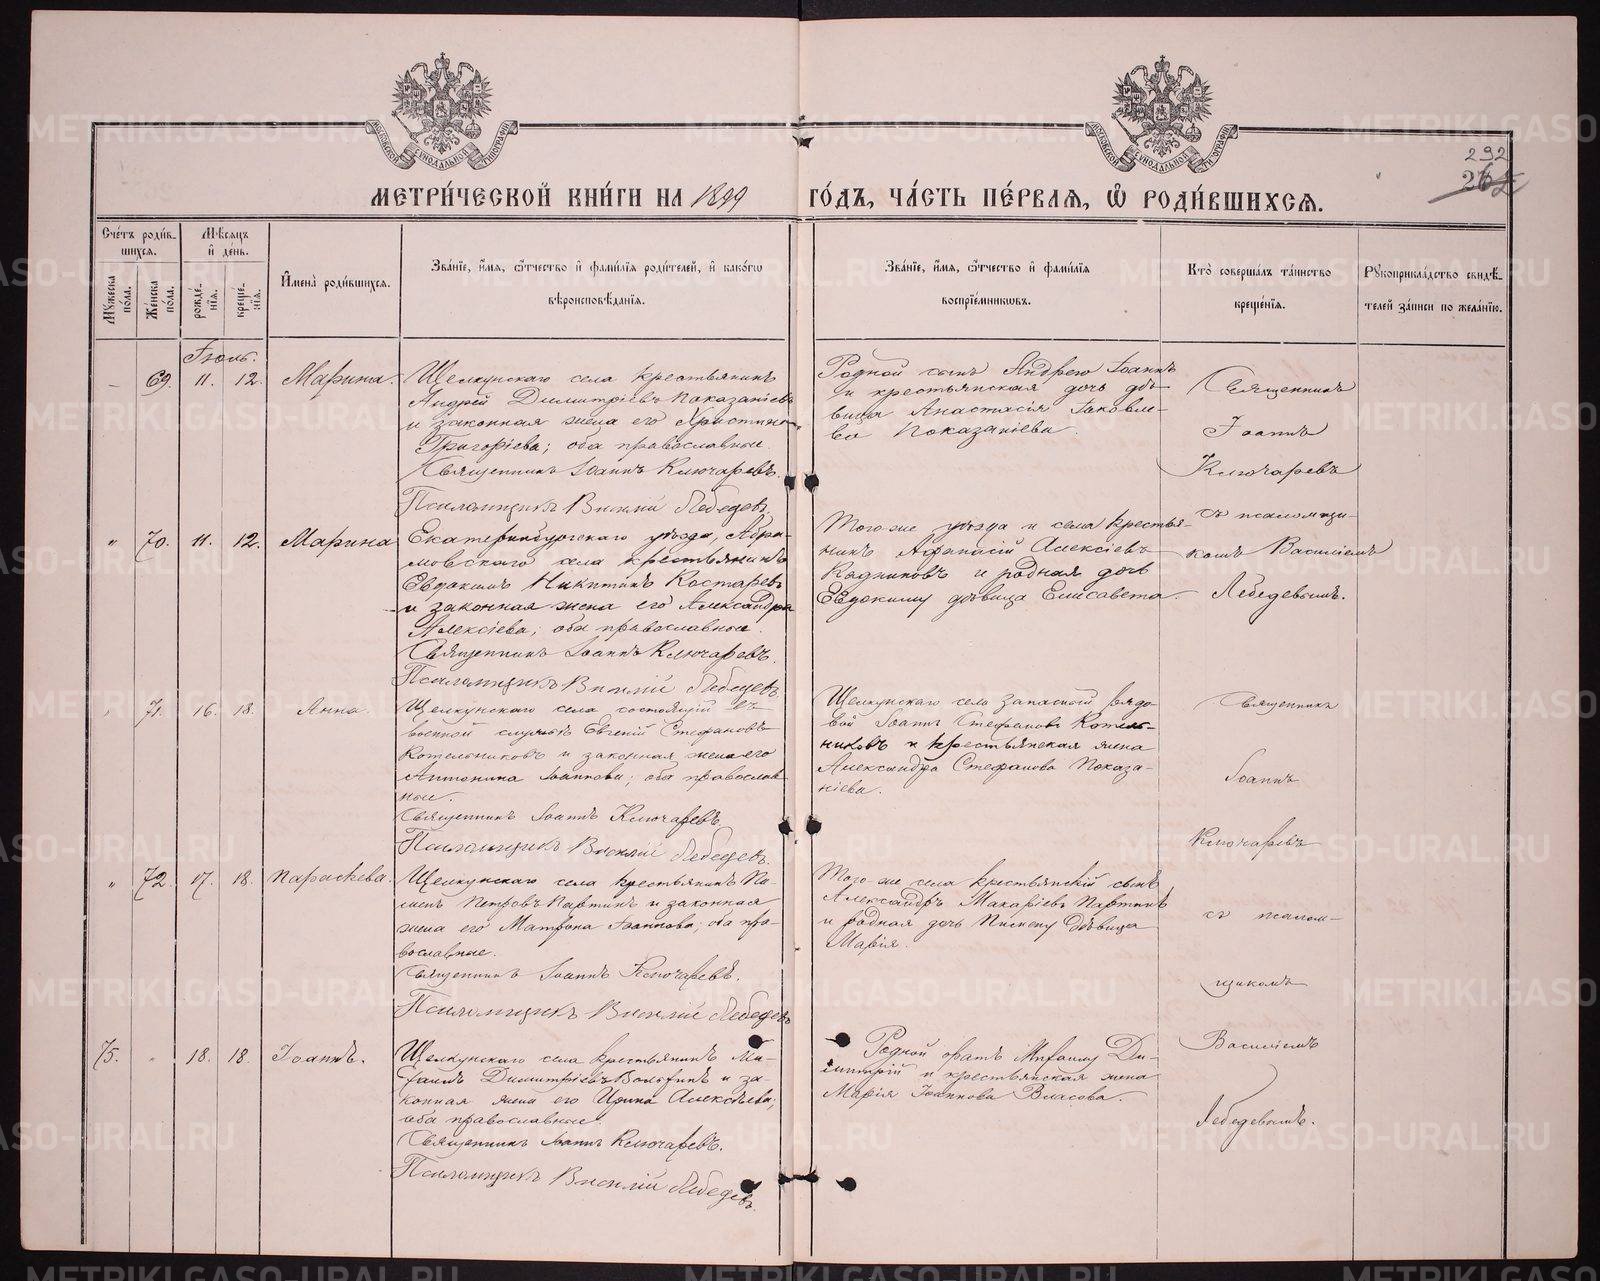 МОСКОВСКОЙ СѴНОДАЛЬНОЙ ТИПОГРАФІИ
МОСКОВСКОЙ СѴНОДАЛЬНОЙ ТИПОГРАФІИ
292
МЕТРИ́ЧЕСКОЙ КНИ́ГИ НА 1899 ГО́ДЪ, ЧА́СТЬ ПЕ́РВАЯ, Ѽ РОДИ́ВШИХСЯ.
Сче́тъ роди́в-
шихся.
Мꙋ́жеска
по́ла.
Же́нска
по́ла.
Мѣ́сяцъ
и҆ де́нь.
рожде́-
нїя.
креще́-
нїя.
И҆мена̀ роди́вшихся.
Зва́нїе, и҆́мя, ѻ҆́тчество и҆ фами́лїя роди́телей, и҆ како́гѡ
вѣроисповѣ́данїя.
Зва́нїе, и҆́мя, ѻ҆́тчество и҆ фами́лїя
воспрїе́мникѡвъ.
Кто̀ соверша́лъ та́инство
креще́нїя.
Рꙋкоприкла́дство свидѣ́-
телей за́писи по жела́нїю.
Іюль.
69. 11. 12. Марина.
Щелкунскаго села крестьянинъ
Андрей Димитріевъ Показаніевъ
и законная жена его Христина
Григоріева; оба православные
Священникъ Іоаннъ Ключаревъ.
Псаломщикъ Василій Лебедевъ.
Родной сынъ Андрею Іоаннъ
и крестьянская дочь дѣ-
вица Анастасія Іаковле-
ва Показаніева.
Священникъ
Іоаннъ
Ключаревъ
съ псаломщи-
комъ Василіемъ
Лебедевымъ.
" 70. 11. 12. Марина
Екатеринбургскаго уѣзда, Абра-
мовскаго села крестьянинъ
Евдокимъ Никитинъ Костаревъ
и законная жена его Александра
Алексіева; оба православные.
Священникъ Іоаннъ Ключаревъ.
Псаломщикъ Василій Лебедевъ
Того-же уѣзда и села крестья-
нинъ Афанасій Алексіевъ
Кадниковъ и родная дочь
Евдокиму дѣвица Елисавета.
" 71. 16. 18. Анна.
Щелкунскаго села состоящій въ
военной службѣ Евгеній Стефановъ
Котельниковъ и законная жена его
Антонина Іоаннова; оба православ-
ные.
Священникъ Іоаннъ Ключаревъ.
Псаломщикъ Василій Лебедевъ.
Щелкунскаго села запасной рядо-
вой Іоаннъ Стефановъ Котель-
никовъ и крестьянская жена
Александра Стефанова Показа-
ніева.
Священникъ
Іоаннъ
Ключаревъ
съ псалом-
щикомъ
Василіемъ
Лебедевымъ.
" 72. 17. 18. Параскева.
Щелкунскаго села крестьянинъ Пи-
менъ Петровъ Партинъ и законная
жена его Матрона Іоаннова; оба пра-
вославные.
Священникъ Іоаннъ Ключаревъ.
Псаломщикъ Василій Лебедевъ
Того-же села крестьянскій сынъ
Александръ Макаріевъ Партинъ
и родная дочь Пимену дѣвица
Марія.
75. " 18. 18. Іоаннъ.
Щелкунскаго села крестьянинъ Ми-
фаилъ Димитріевъ и за-
конная жена его Ирина Алексѣева;
оба православные.
Священникъ Іоаннъ Ключаревъ.
Псаломщикъ Василій Лебедевъ.
Родной братъ Ди-
митрій и крестьянская жена
Марія Іоаннова Власова.